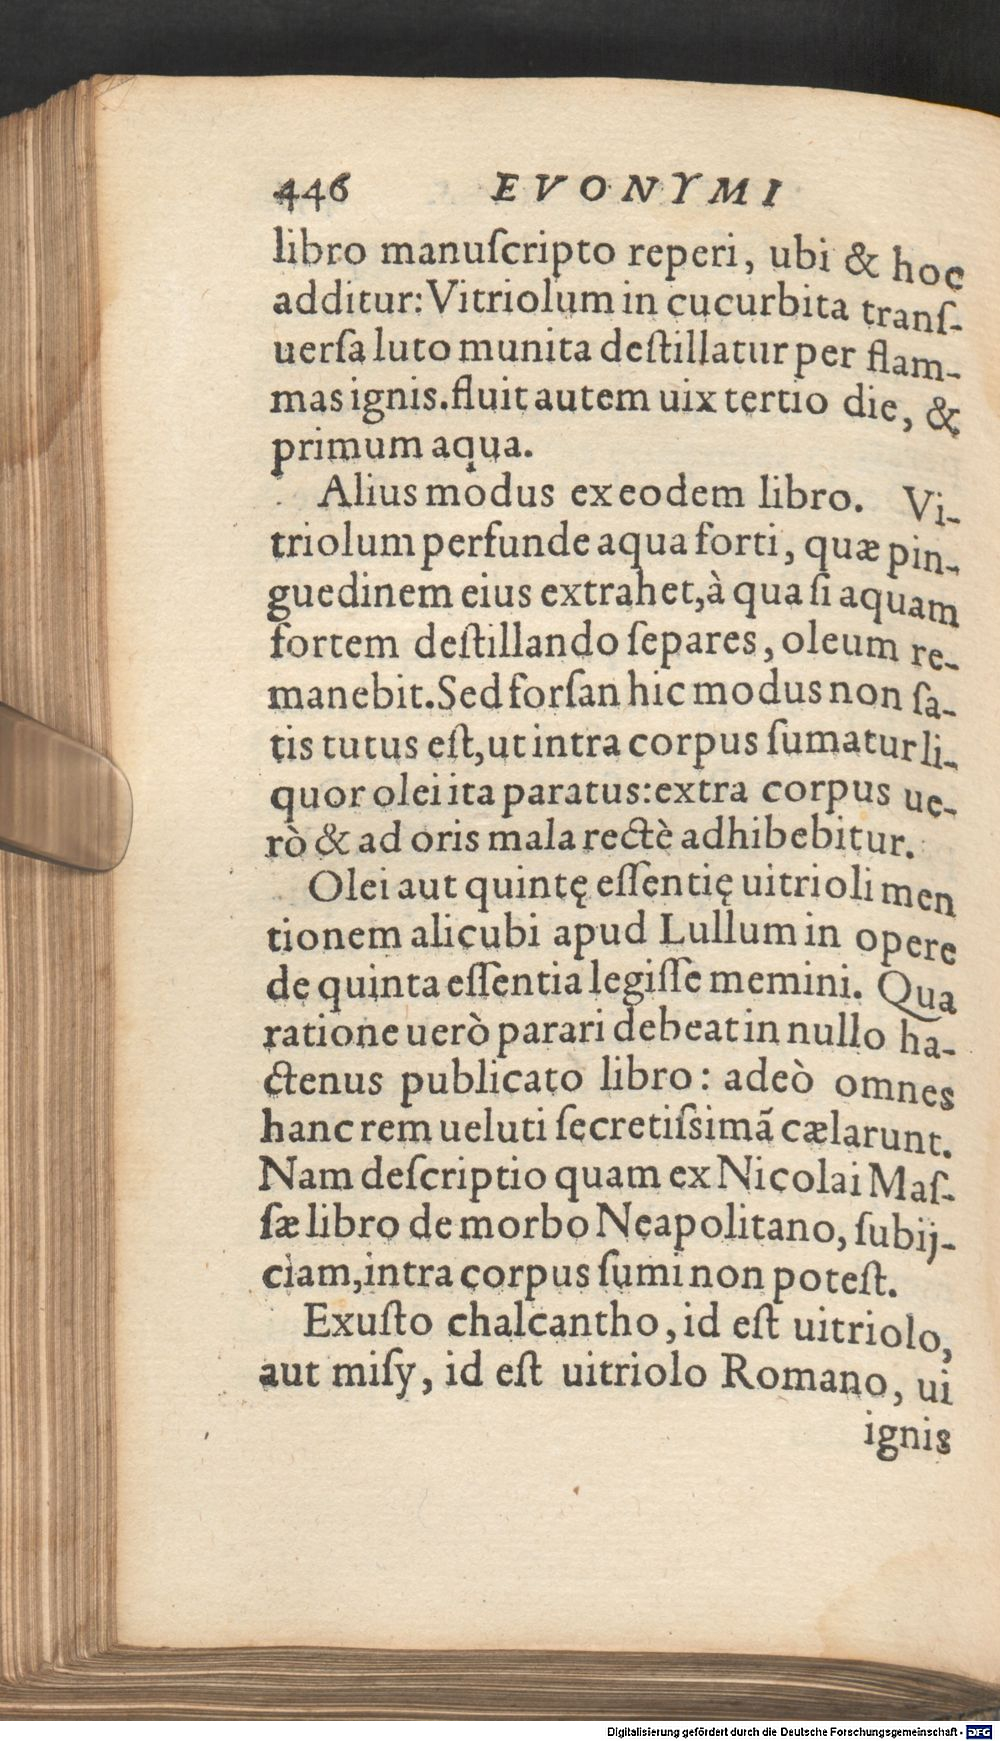 446 EVONYMI
libro manuſcripto reperi, ubi & hoc
additur: Vitriolum in cucurbita tranſ-
uerſa luto munita deſtillatur per flam-
mas ignis. fluit autem uix tertio die, &
primum aqua.
Alius modus ex eodem libro. Vi-
triolum perfunde aqua forti, quæ pin-
guedinem eius extrahet, à qua ſi aquam
fortem deſtillando ſepares, oleum re-
manebit. Sed forſan hic modus non ſa-
tis tutus eſt, ut intra corpus ſumatur li-
quor olei ita paratus: extra corpus ue-
rò & ad oris mala rectè adhibebitur.
Olei aut quintę eſſentię uitrioli men
tionem alicubi apud Lullum in opere
de quinta eſſentia legiſſe memini. Qua
ratione uerò parari debeat in nullo ha-
ctenus publicato libro: adeò omnes
hanc rem ueluti ſecretiſsimã cælarunt.
Nam deſcriptio quam ex Nicolai Maſ-
ſæ libro de morbo Neapolitano, ſubij-
ciam, intra corpus ſumi non poteſt.
Exuſto chalcantho, id eſt uitriolo,
aut miſy, id eſt uitriolo Romano, ui
ignis
Digitalisierung gefördert durch die Deutsche Forschungsgemeinschaft - DFG